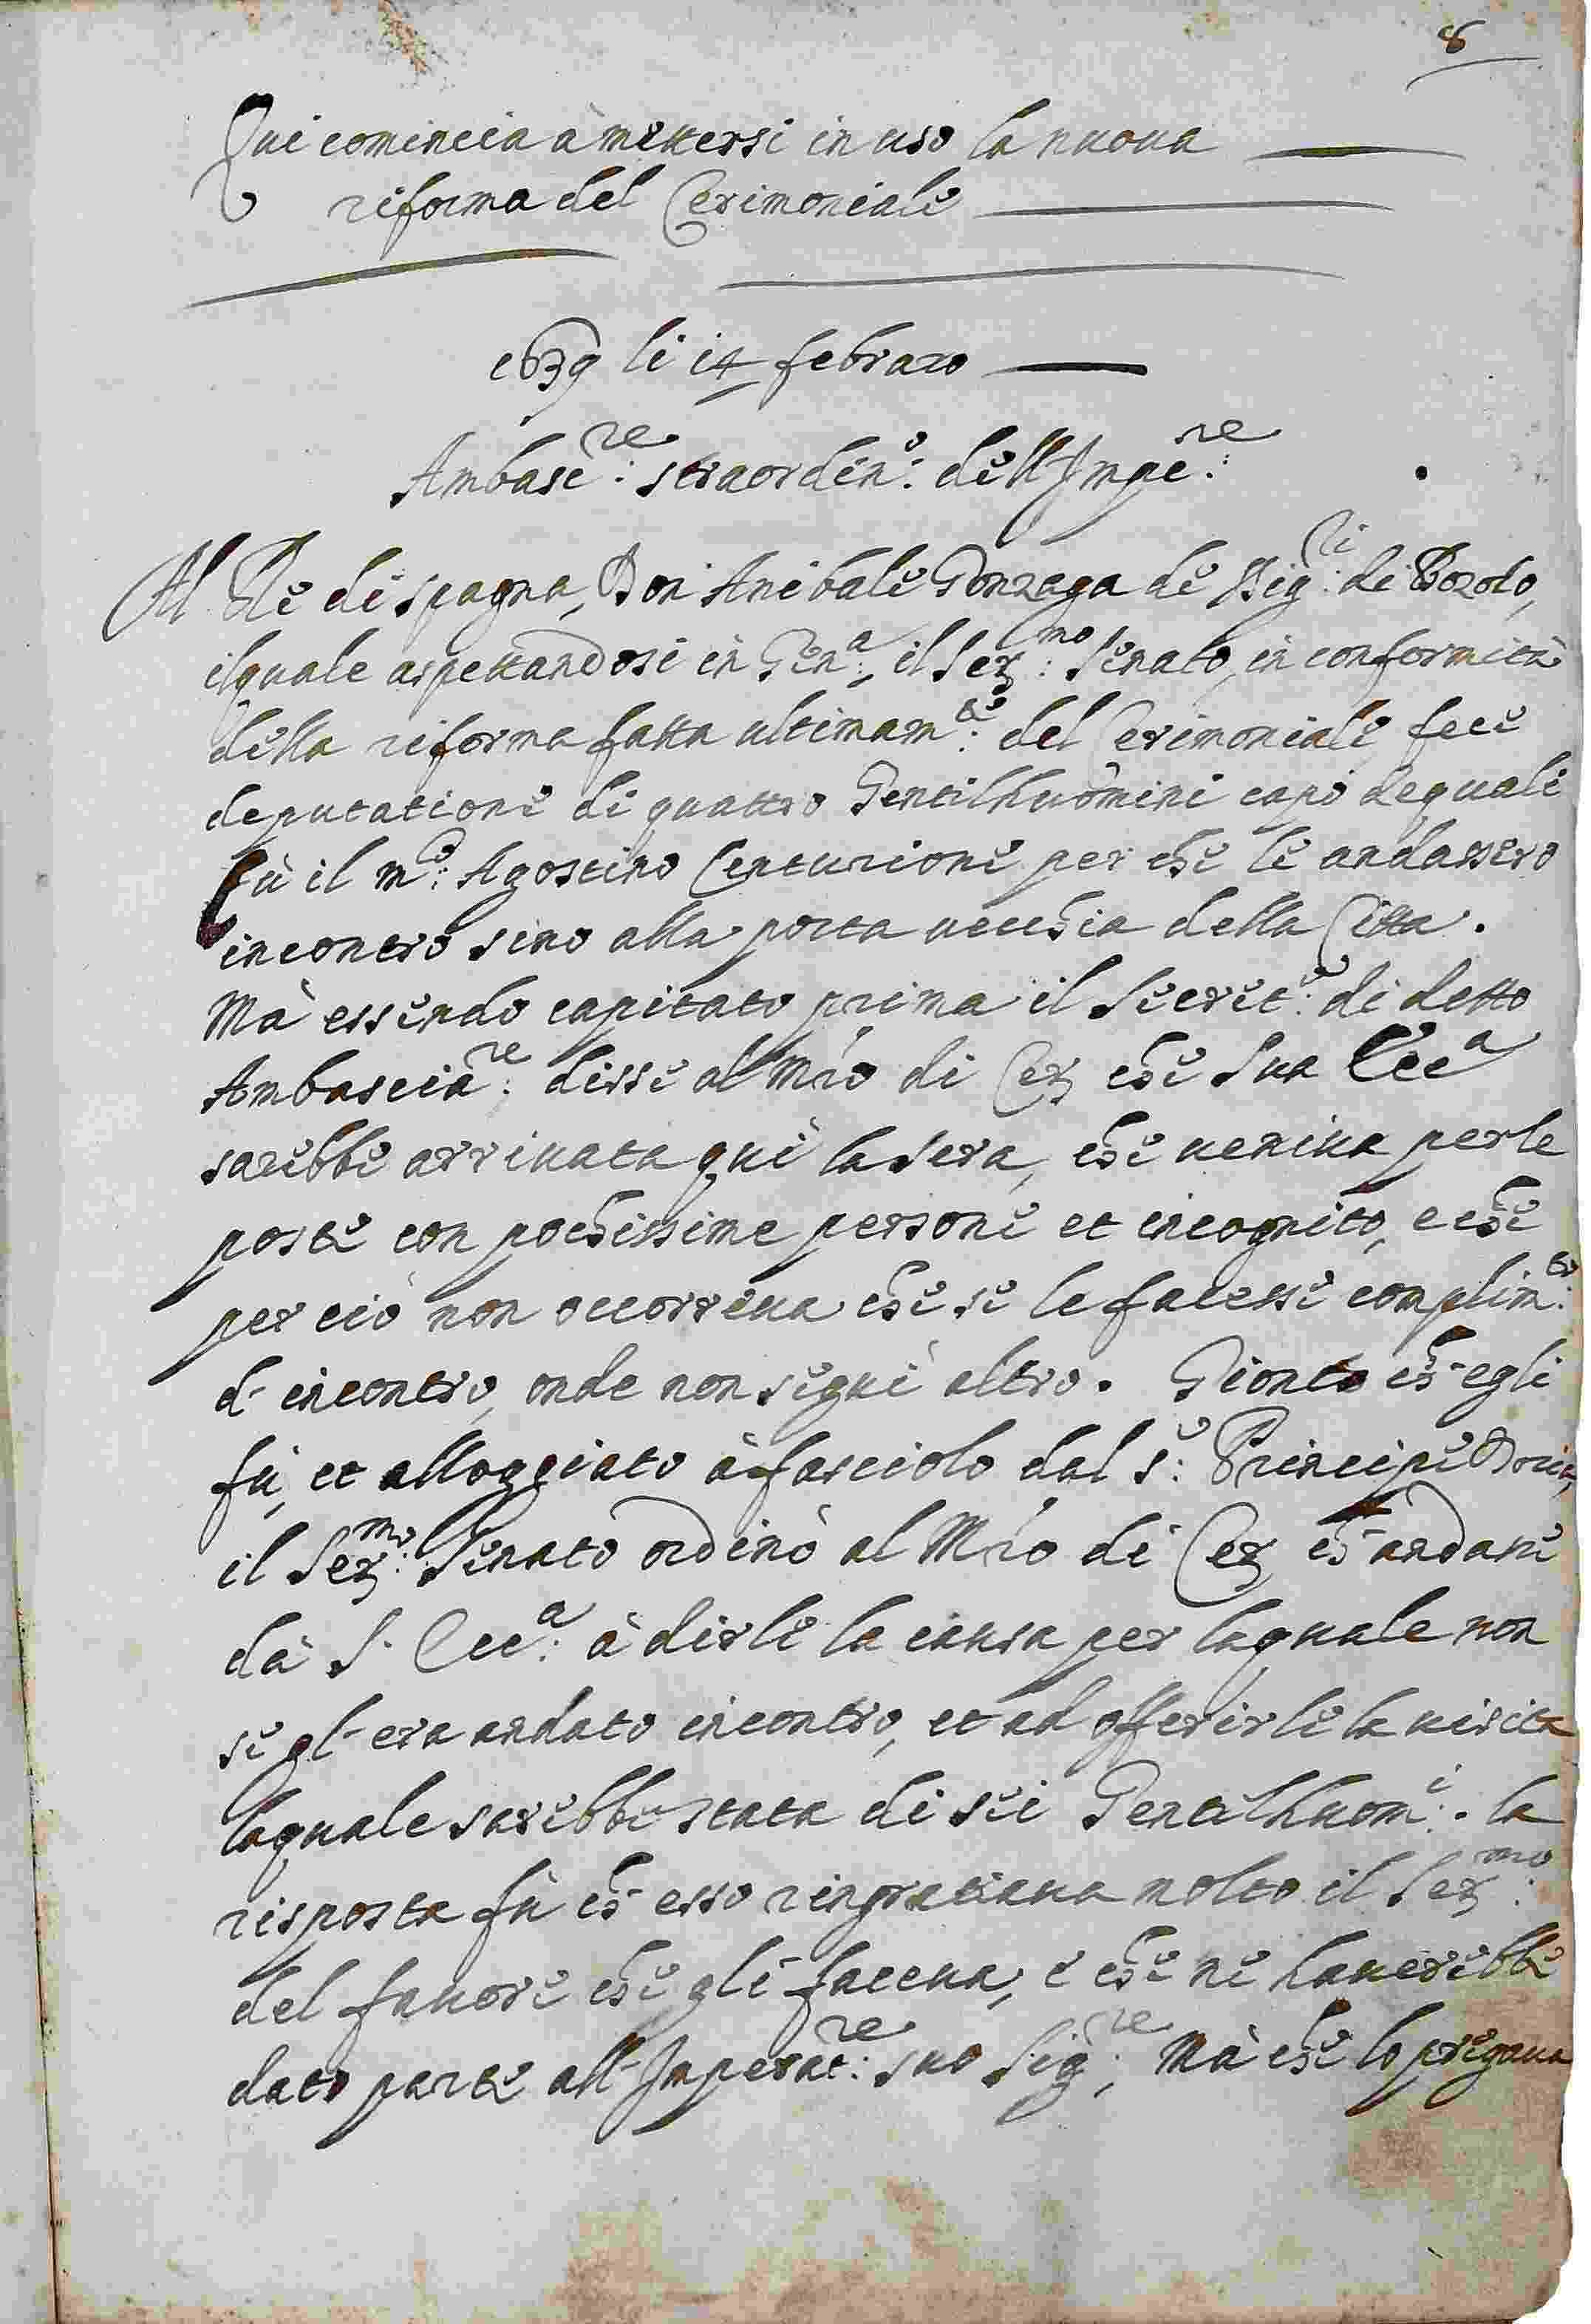 8
Qui comincia à mettersi in uso la nuova
riforma del Cerimoniale
1639 li 14 febraro
Ambasc.re straordin.o dell'Impe.re
Al Rè di spagna, Don Anibale Gonzaga de Sig.ri di Bozolo,
il quale aspettandosi in Gen.a, il Ser.mo Senato, in conformità
della riforma fatta ultimam.te del Cerimoniale, fece
deputatione di quattro Gentilhuomini capo de quali
fù il m.o Agostino Centurione, per che le andassero
incontro sino alla porta vecchia della Città.
Mà essendo capitato prima il Secret.o di detto
Ambascia.re disse al Mro di Cer che Sua Ecc.a
sarebbe arrivata quì la sera, che veniva per le
poste con pochissime persone et incognito, e che
per ciò non occorreva che se le facesse complim.to
d'incontro, onde non seguì altro. Gionto ch'egli
fù, et alloggiato à fasciolo dal s.e Principe Doria,
il Ser.mo Senato ordinò al Mro di Cer ch'andasse
dà S. Ecc.a à dirle la causa per la quale non
se gl'era andato incontro, et ad offerirle la visita
la quale sarebbe stata di sei Gentilhuom.i. la
risposta fù ch'esso ringratiava molto il Ser.mo
del favore che gli faceva, e che ne haverebbe
dato parte all'Imperat.re suo Sig.re, Mà che lo pregava